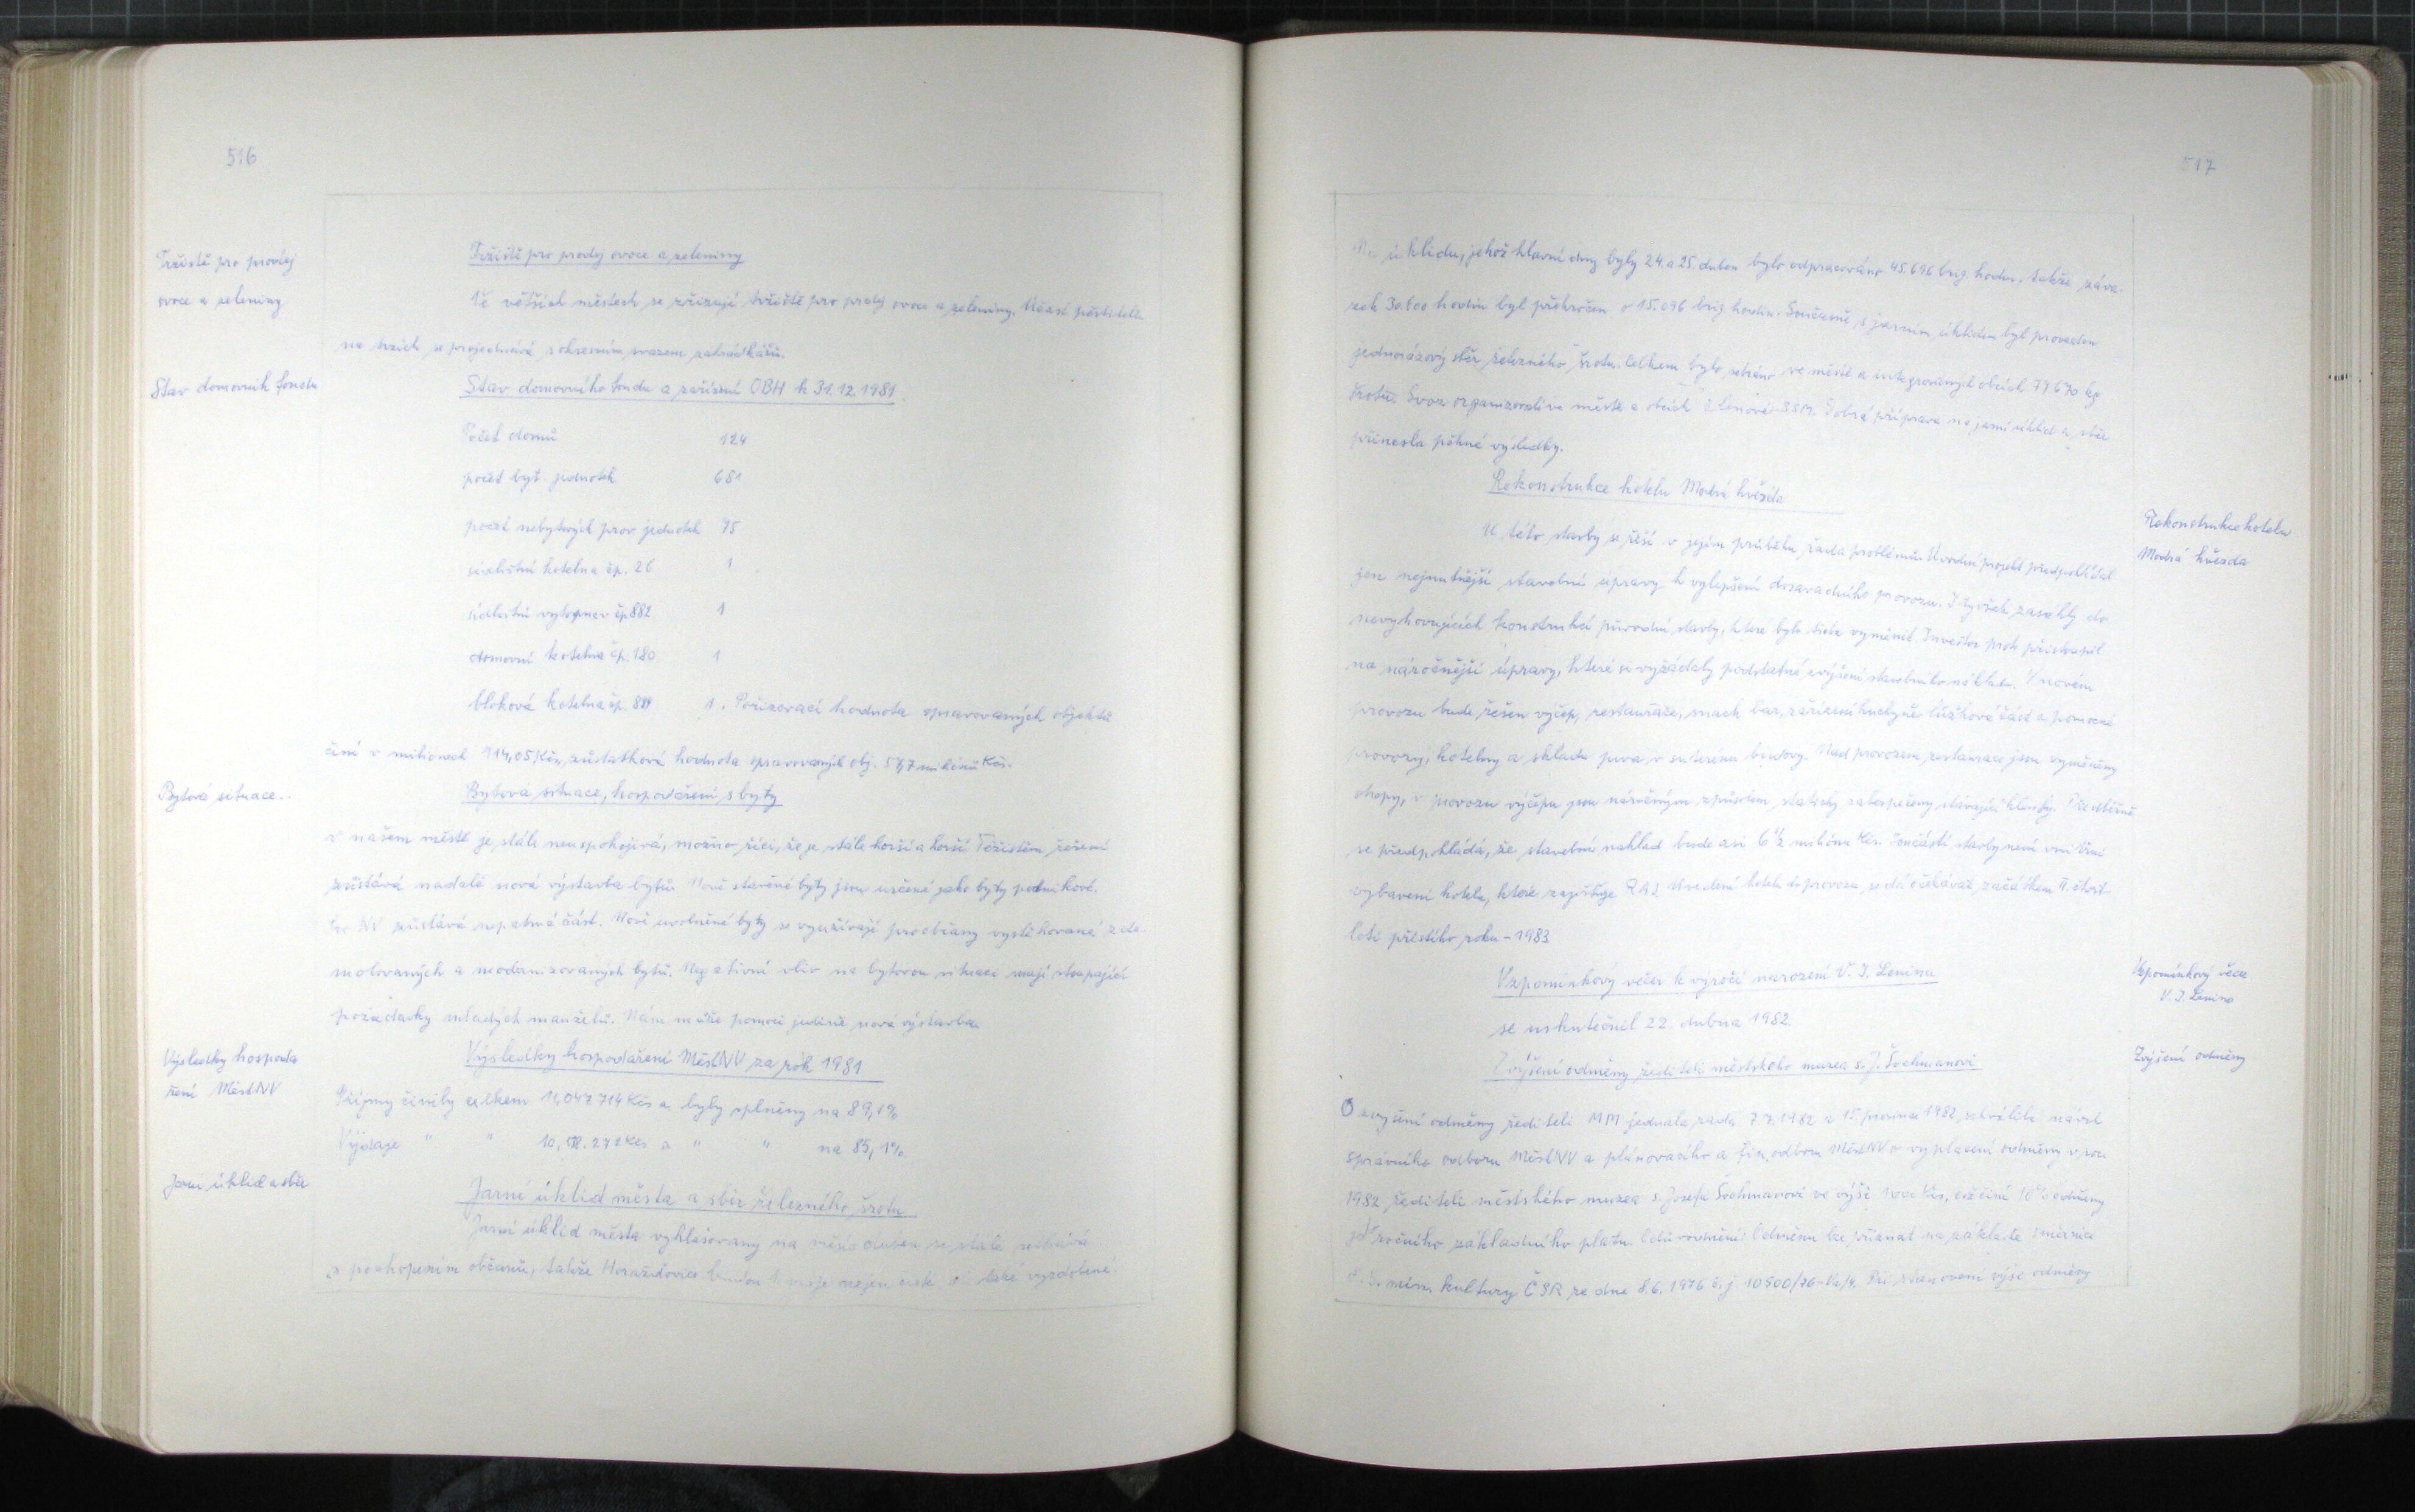 516
Tržiště pro prodej
ovoce a zeleniny
Tržiště pro prodej ovoce a zeleniny
Ve větších městech se zřizují tržiště pro prodej ovoce a zeleniny. Účast pěstitelů
na trzích se projednává s okresním svazem zahrádkářů.
Stav domovních fondu
Stav domovního fondu a zařízení OBH k 31.12.1981.
Počet domů 124
počet byt. jednotek 681
počet nebytových prov. jednotek 75
sídlištní kotelna čp. 26 1
sídlištní čp. 882 1
domovní kotelna čp. 180 1
bloková kotelna čp. 1. Pořizovací hodnota spravovaných objektů
činí v milionech 114,05 Kčs, zůstatková hodnota spravovaných obj. 57,7 milionů Kčs.
Bytová situace..
Bytová situace, hospodaření s byty
v našem městě je stále neuspokojivá, možno říci, že je stále horší a horší. Těžištěm řešení
zůstává nadále nová výstavba bytů. Nově stavěné byty jsou určené jako byty podnikové.
Pro NV zůstává nepatrná část. Nově uvolněné byty se využívají pro občany vystěhované z de-
molovaných a modernizovaných bytů. Negativní vliv na bytovou situaci mají stoupající
požadavky mladých manželů. Nám může pomoci jedině nová výstavba.
Výsledky hospoda
ření MěstNV
Výsledky hospodaření MěstNV za rok 1981
Příjmy činily celkem 11,047 714 Kčs a byly splněny na 89,1%
Výdaje " " 272 Kčs a " " na 85,1%.
Jarní úklid a sběr
Jarní úklid města a sběr železného šrotu
Jarní úklid města vyhlašovaný na měsíc duben se stále setkává
s pochopením občanů, takže Horažďovice budou k máji nejen čisté, ale také vyzdobené.
517
úklidu, jehož hlavní dny byly 24. a 25. duben bylo odpracováno 45.696 brig. hodin, takže záva-
zek 30.600 hodin byl překročen o 15.096 brig. hodin. Současně s jarním úklidem byl proveden
jednorázový sběr železného šrotu. Celkem bylo sebráno ve městě a integrovaných obcích 79 670 kg
šrotu. Svoz organizovali ve městě a obcích členové SSM. Dobrá příprava na jarní úklid a sběr
přinesla pěkné výsledky.
Rekonstrukce hotelu Modrá hvězda
Rekonstrukce hotelu
Modrá hvězda
U této stavby se řeší v jejím průběhu řada problémů. Úvodní projekt předpokládal
jen nejnutnější stavební úpravy k vylepšení dosavadního provozu. I ty však zasáhly do
nevyhovujících konstrukcí původní stavby, které bylo třeba vyměnit. Investor proto přistoupil
na náročnější úpravy, které si vyžádaly podstatné zvýšení stavebního nákladu. V novém
provozu bude řešen výčep, restaurace, snack bar, zařízení kuchyně lůžková část a pomocné
provozy, kotelny a skladu piva v suterénu budovy. Nad provozem restaurace jsou vyměněny
stropy, v provozu výčepu jsou náročným způsobem staticky zabezpečeny stávající klenby. Předběžně
se předpokládá, že stavební náklad bude asi 6 1/2 milionu Kčs. Součástí stavby není vnitřní
vybavení hotelu, které zajišťuje RAJ. Uvedení hotelu do provozu se dá očekávat začátkem II. čtvrt-
letí příštího roku - 1983.
Vzpomínkový večer k výročí narození V. I. Lenina
Vzpomínkový večer
V. I. Lenina
se uskutečnil 22. dubna 1982.
Zvýšení odměny řediteli městského muzea s. J. Šochmanovi
Zvýšení odměny
O zvýšení odměny řediteli MM jednala rada 7.7.1982 a 15. prosince 1982, schválila návrh
správního odboru MěstNV a plánovacího a fin. odboru MěstNV o vyplacení odměny v roce
1982 řediteli městského muzea s. Josefu Šochmanovi ve výši 1000 Kčs, což činí 10% odměny
ročního základního platu. Odůvodnění: Odměnu lze přiznat na základě směrnice
č. 5. min. kultury ČSR ze dne 8.6.1976 č. j. 10500/76-Vo/4. Při stanovení výše odměny